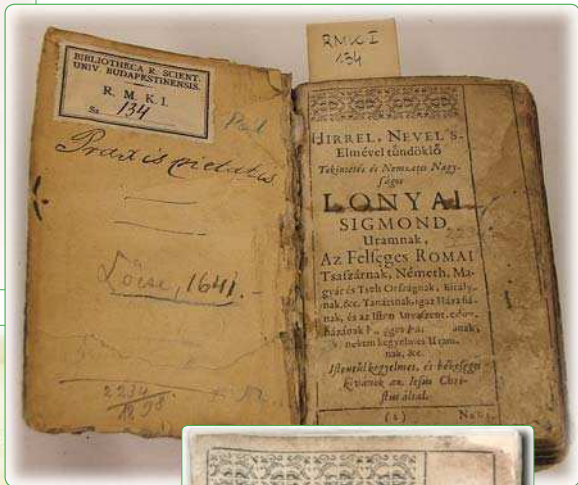 BIBLIOTHECA R. SCIENT.
UNIV. BUDAPESTINENSIS.
R. M. K. I.
Sz. 134
Praxis pietatis
Lőcse, 1641.-
2234
RMK I
134
HIRREL, NEVEL S-
Elmével tűndöklő
Tekintetes és Nemzetes Nagy-
ságos
LONYAI
SIGMOND
Uramnak,
Az Felséges ROMAI
Tsaszárnak, Németh, Ma-
gyár és Tseh Országnak, Királly-
nak, &c. Tanátsnak, igaz Házafiá-
nak, és az Isten
házának
nekem kegyelmes Uram-
nak, &c.
Istentűl kegyelmet, és békeséget
kivánok az Iesus Chri-
stus által.
(2)